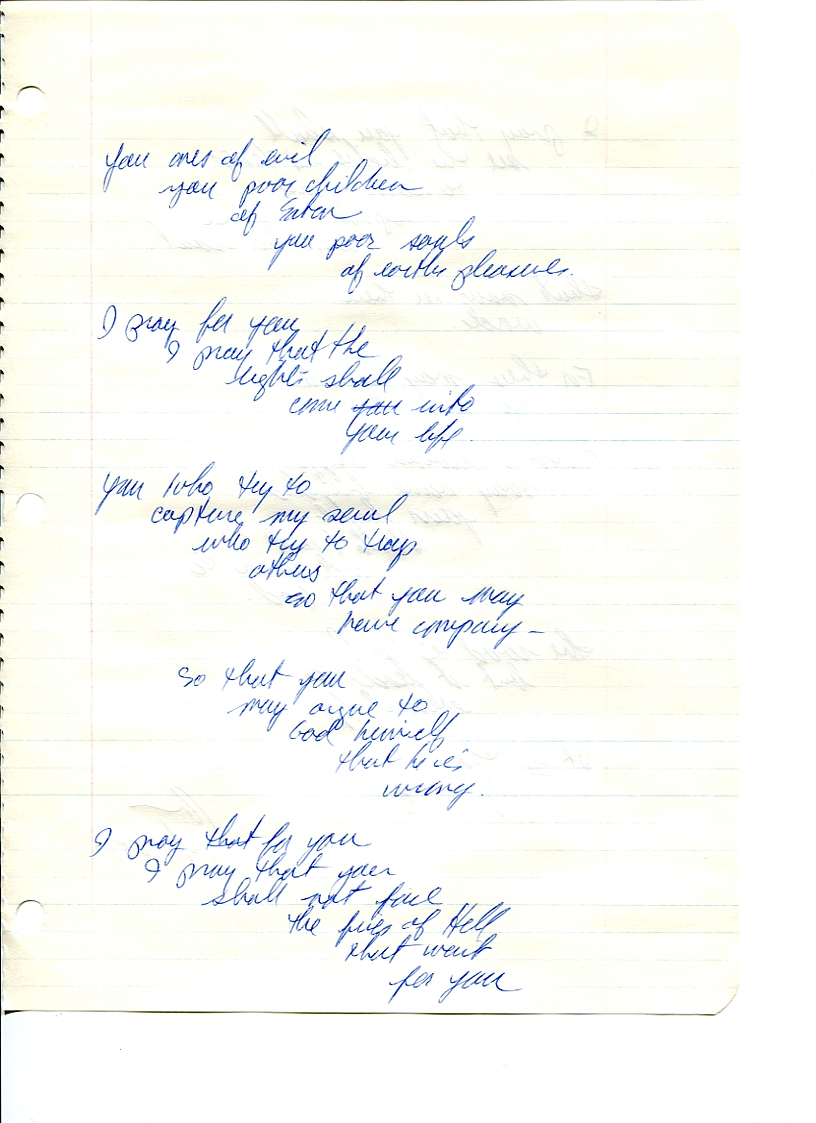 you ones of evil
you poor children
of Satan
you poor souls
of earths pleasures.
I pray for you
I pray that the
lights shall
come you into
your life.
you who try to
capture my soul
who try to trap
others
so that you may
have company –
So that you
may argue to
God himself
that he is
wrong.
I pray that for you
I pray that you
shall not face
the fires of Hell
that wait
for you